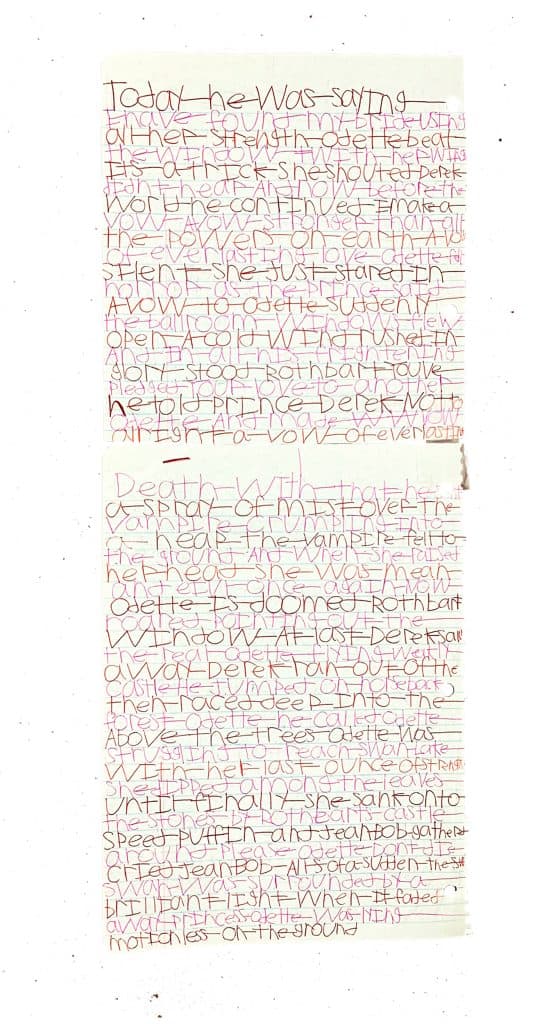 Today he was saying
I have found my bride using
all her strength Odette beat
the window with her wings
Its a trick she shouted Derek
didnt hear And now before the
world he continued I make a
vow A vow stronger than all
the powers on earth A vow
of everlasting love Odette fell
silent She just stared in
horror as the prince said
A vow to Odette Suddenly
the ballroom window flew
open A cold wind rushed in
And in all his frightening
glory stood Rothbart Youve
pledged your love to another
he told Prince Derek Not to
Odette And made
alright a vow of everlasting
Death With that he
a spray of mist over the
vampire crumpling into
a heap the vampire fell to
the ground And when she raised
her head she was mean
and evil once again now
Odette Is doomed Rothbart
roared pointing out the
window At last Derek saw
the real Odette flying weakly
away Derek ran out of the
castle He jumped on horseback
then raced deep into the
forest Odette he called Odette
Above the trees Odette was
struggling to reach Swan Lake
With her last ounce of strength
she dipped among the leaves
until finally she sank onto
the stones by Rothbarts castle
Speed Puffin and Jean Bob gathered
around Please Odette Dont die
cried Jean Bob All of a sudden the
swan was surrounded by a
brilliant light When it faded
away Princess Odette was lying
motionless on the ground